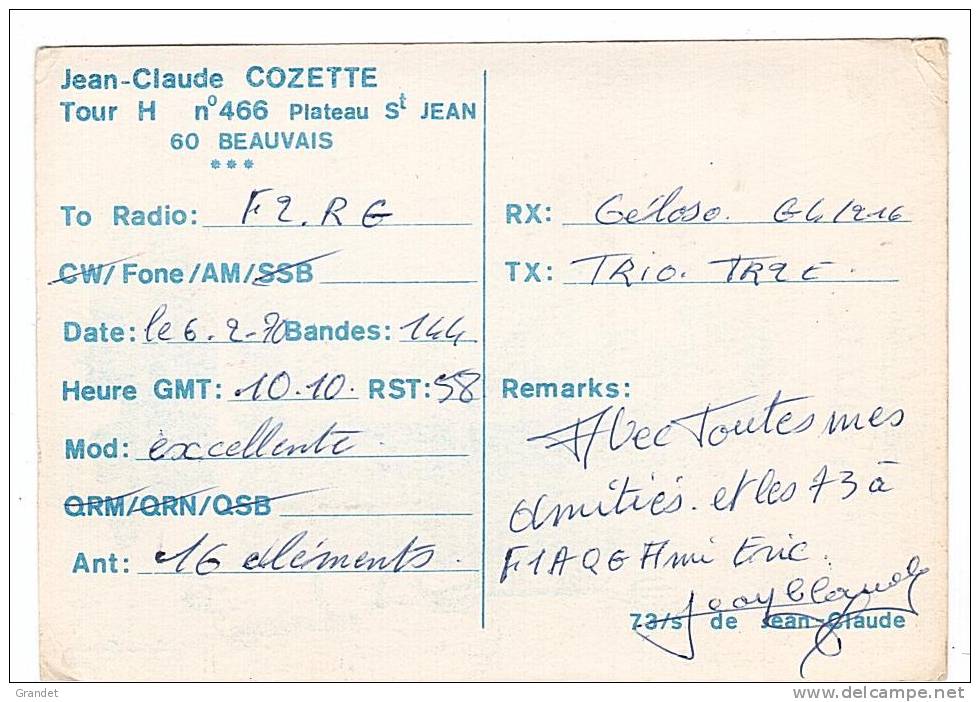 Jean-Claude COZETTE
Tour H n°466 Plateau St JEAN
60 BEAUVAIS
***
To Radio: F2.RG
CW/Fone/AM/SSB
Date: le 6.2-70 Bandes: 144
Heure GMT: 10.10. RST: 58
Mod: excellente
QRM/QRN/QSB
Ant: 16 éléments.
RX: Géloso. G4/216
TX: TRIO. TR2E.
Remarks:
Avec Toutes mes
amitiés. et les 73 à
F1AQG Ami Eric.
Jean Claude
73/s de Jean-Claude
Grandet
delcampe.net